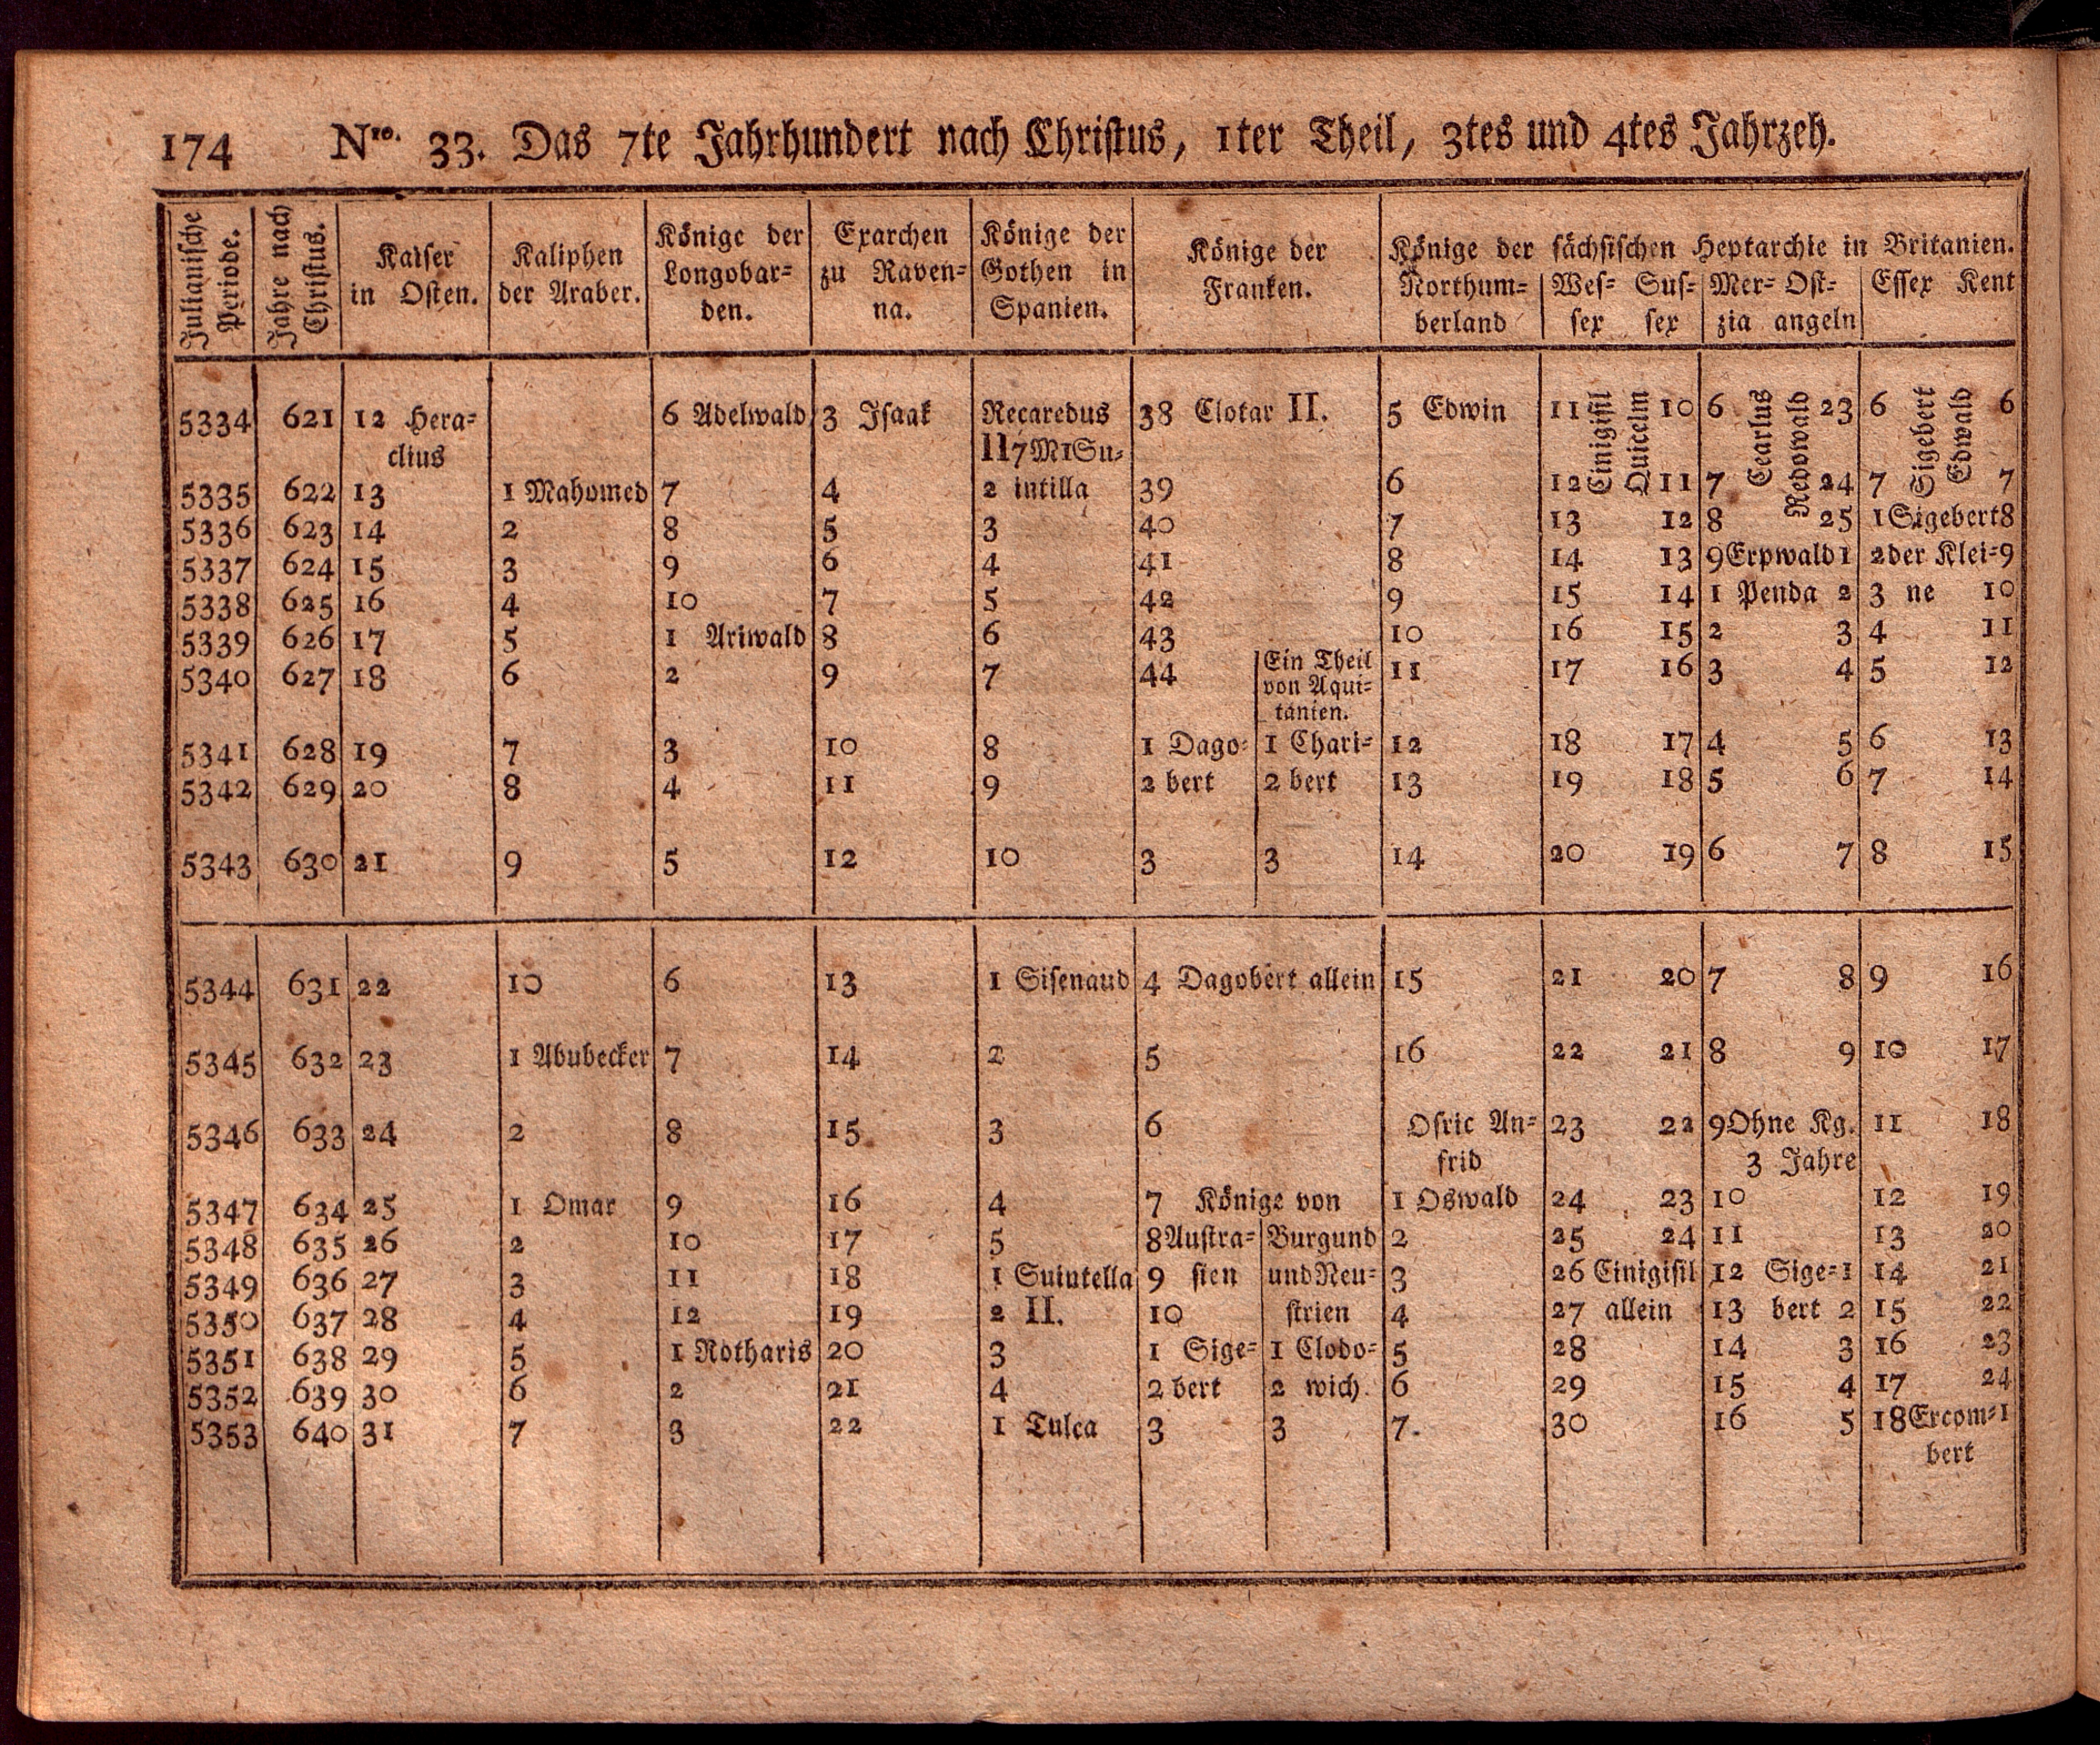 174 Nro. 33. Das 7te Jahrhundert nach Christus, 1ter Theil, 3tes und 4tes Jahrzeh.
Julianische Periode. | Jahre nach Christus. | Kaiser in Osten. | Kaliphen der Araber. | Könige der Longobar= den. | Exarchen zu Raven= na. | Könige der Gothen in Spanien. | Könige der Franken. | Könige der sächsischen Heptarchie in Britanien.
Northum= berland | Wes= sex Sus= sex | Mer= zia Ost= angeln | Essex Kent
5334 621 12 Hera= 6 Adelwald 3 Isaak Recaredus 38 Clotar II. 5 Edwin 11 Cinigisil Quicelm 10 6 Cearlus Redowald 23 6 Sigebert Edwald 6
clius II 7 M 1 Su=
5335 622 13 1 Mahomed 7 4 2 intilla 39 6 12 11 7 24 7 7
5336 623 14 2 8 5 3 40 7 13 12 8 25 1 Sigebert 8
5337 624 15 3 9 6 4 41 8 14 13 9 Erpwald 1 2 der Klei= 9
5338 625 16 4 10 7 5 42 9 15 14 1 Penda 2 3 ne 10
5339 626 17 5 1 Ariwald 8 6 43 10 16 15 2 3 4 11
5340 627 18 6 2 9 7 44 Ein Theil 11 17 16 3 4 5 12
von Aqui=
tanien.
5341 628 19 7 3 10 8 1 Dago= 1 Chari= 12 18 17 4 5 6 13
5342 629 20 8 4 11 9 2 bert 2 bert 13 19 18 5 6 7 14
5343 630 21 9 5 12 10 3 3 14 20 19 6 7 8 15
5344 631 22 10 6 13 1 Sisenaud 4 Dagobert allein 15 21 20 7 8 9 16
5345 632 23 1 Abubecker 7 14 2 5 16 22 21 8 9 10 17
5346 633 24 2 8 15 3 6 Osric An= 23 22 9 Ohne Kg. 11 18
frid 3 Jahre
5347 634 25 1 Omar 9 16 4 7 Könige von 1 Oswald 24 23 10 12 19
5348 635 26 2 10 17 5 8 Austra= Burgund 2 25 24 11 13 20
5349 636 27 3 11 18 1 Suintella 9 sien und Neu= 3 26 Cinigisil 12 Sige= 1 14 21
5350 637 28 4 12 19 2 II. 10 strien 4 27 allein 13 bert 2 15 22
5351 638 29 5 1 Rotharis 20 3 1 Sige= 1 Clodo= 5 28 14 3 16 23
5352 639 30 6 2 21 4 2 bert 2 wich. 6 29 15 4 17 24
5353 640 31 7 3 22 1 Tulca 3 3 7. 30 16 5 18 Ercom= 1
bert